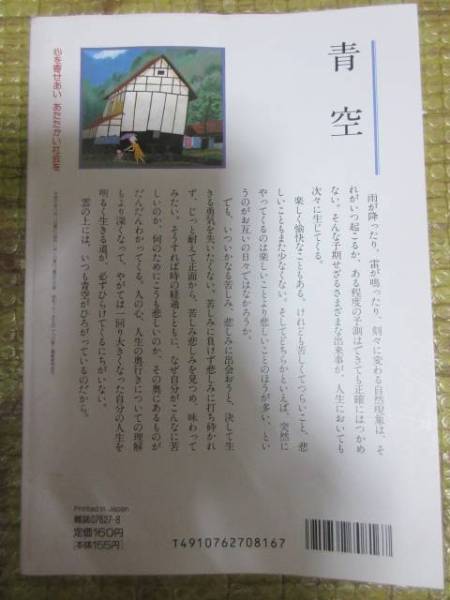 青空
雨が降ったり、雷が鳴ったり、刻々に変わる自然現象は、そ
れがいつ起こるか、ある程度の予測はできても正確にはつかめ
ない。そんな予期せざるさまざまな出来事が、人生においても
次々に生じてくる。
楽しく愉快なこともある。けれども苦しくてつらいこと、悲
しいこともまた少なくない。そしてどちらかといえば、突然に
やってくるのは楽しいことより悲しいことのほうが多い、とい
うのがお互いの日々ではなかろうか。
でも、いついかなる苦しみ、悲しみに出会おうと、決して生
きる勇気を失いたくない。苦しみに負けず悲しみに打ち砕かれ
ず、じっと耐えて正面から、苦しみ、悲しみを見つめ、味わって
みたい。そうすれば時の経過とともに、なぜ自分がこんなに苦
しいのか、何のためにこうも悲しいのか、その奥にあるものが
だんだんわかってくる。人の心、人生の奥行きについての理解
もより深くなって、やがては一回り大きくなった自分の人生を
明るく生きる道が、必ずひらけてくるにちがいない。
雲の上には、いつも青空がひろがっているのだから。
心を寄せあい あたたかい社会を
Printed in Japan
雑誌07627-8
定価160円
[本体155円]
T4910762708167